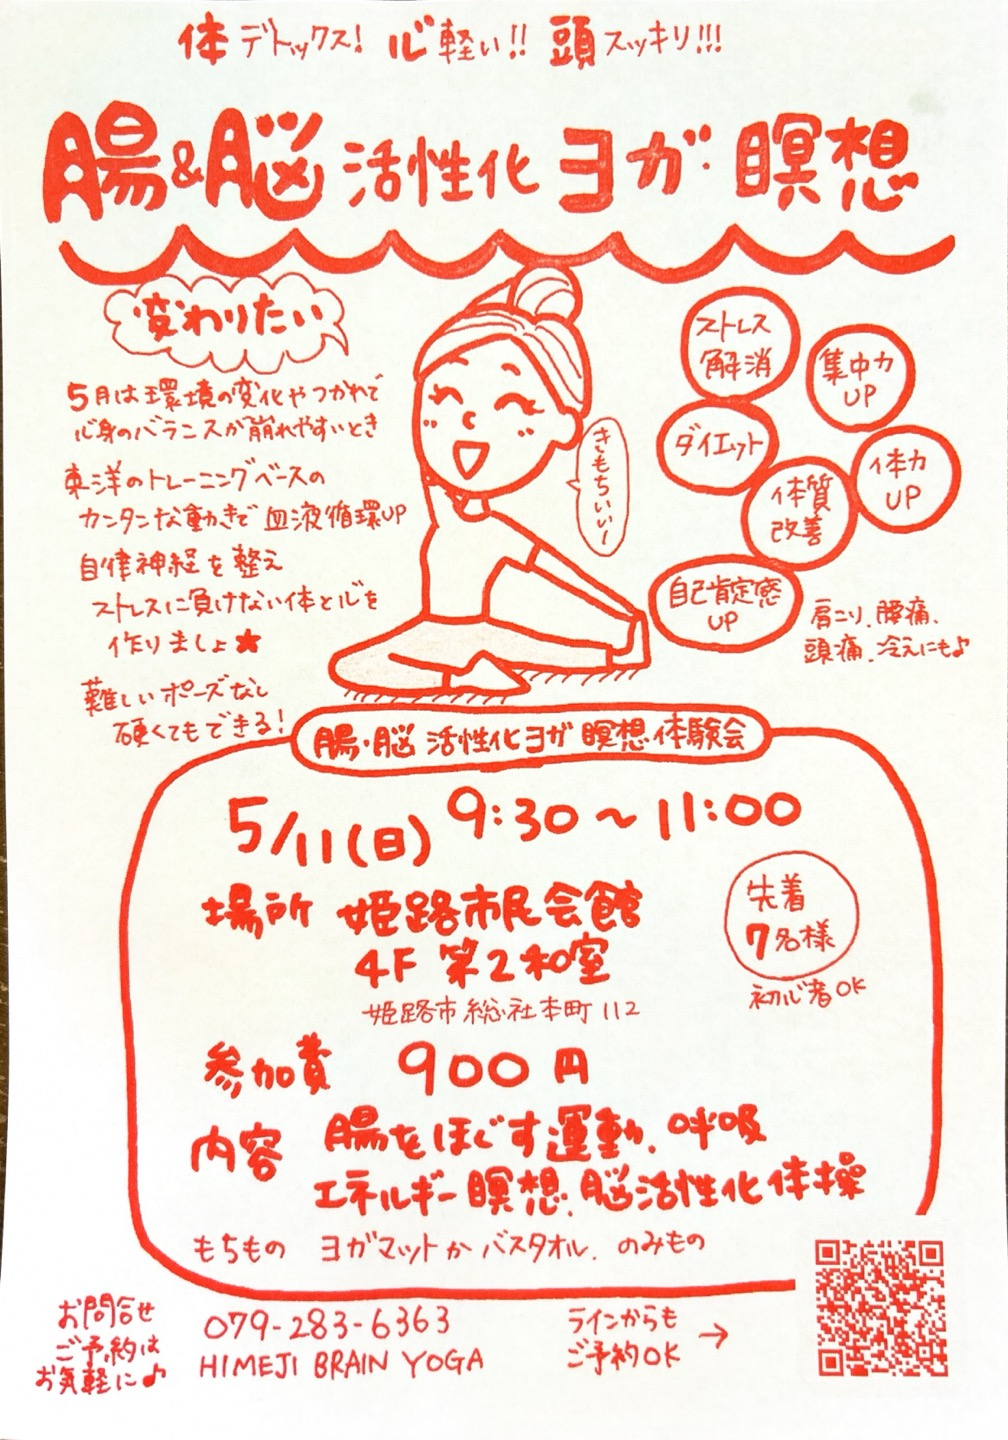 体デトックス! 心軽い!! 頭スッキリ!!!
腸&脳活性化ヨガ・瞑想
変わりたい
5月は環境の変化やつかれで
心身のバランスが崩れやすいとき
東洋のトレーニングベースの
カンタンな動きで血液循環UP
自律神経を整え
ストレスに負けない体と心を
作りましょ★
難しいポーズなし
硬くてもできる!
きもちいいー
ストレス
解消
集中力
UP
ダイエット
体質
改善
体力
UP
自己肯定感
UP
肩こり、腰痛、
頭痛、冷えにも♪
腸・脳活性化ヨガ瞑想体験会
5/11(日) 9:30~11:00
場所 姫路市民会館
4F 第2和室
姫路市総社本町112
先着
7名様
初心者OK
参加費 900円
内容 腸をほぐす運動、呼吸
エネルギー瞑想、脳活性化体操
もちもの ヨガマットかバスタオル、のみもの
お問合せ
ご予約は
お気軽に♪
079-283-6363
HIMEJI BRAIN YOGA
ラインからも
ご予約OK →